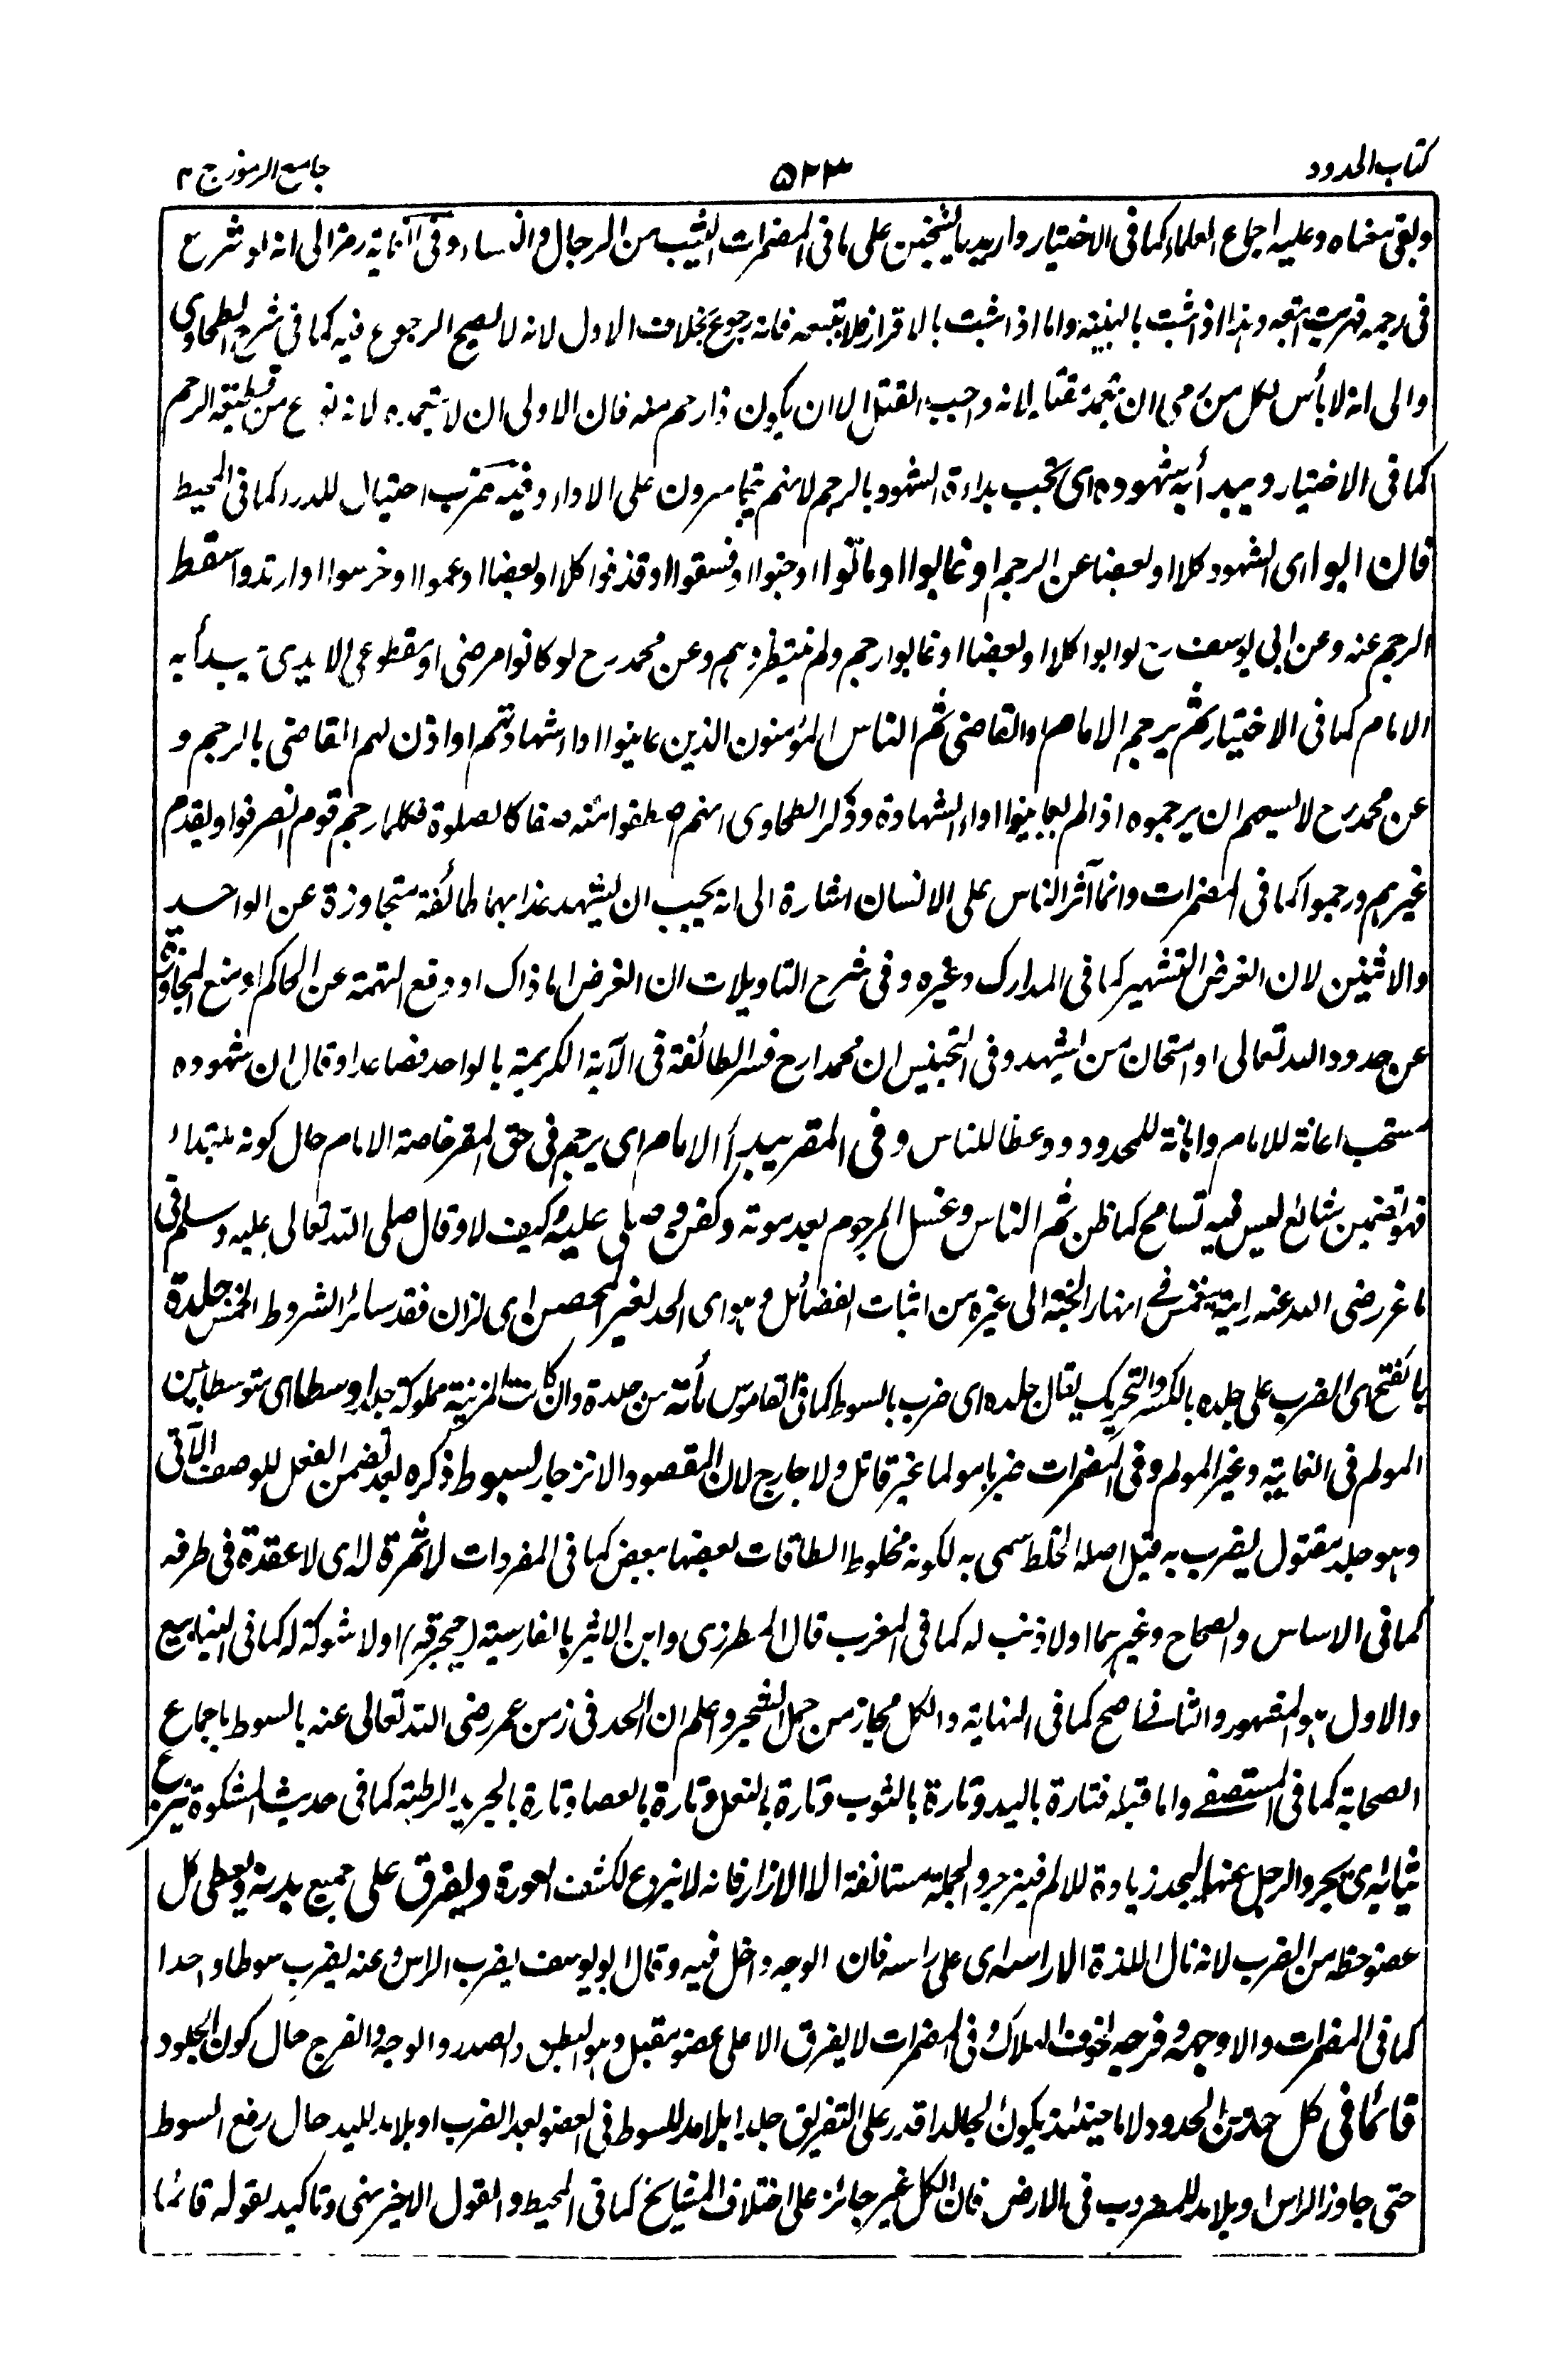 كتاب الحدود ٥٢٣ جامع الرموز ج ٢
وبقى معناه وعليه اجماع العلماء كما فى الاختيار واريد بالشيخين على ما فى المضمرات الثيب من الرجال والنساء وفى النهاية رمز الى انه لو شرع
فى رجمه فهرب اتبعه وهذا اذا ثبت بالبينة واما اذا ثبت بالاقرار فلا يتبعه فانه رجوع بخلاف الاول لانه لا يصح الرجوع فيه كما فى شرح الطحاوى
والى انه لا بأس لكل من رمى ان يتعمد قتله لانه واجب القتل الا ان يكون ذا رحم منه فان الاولى ان لا يتعمده لانه نوع من قطيعة الرحم
كما فى الاختيار ويبدأ به شهوده اى يجب بداءة الشهود بالرجم لانهم يتجاسرون على الاداء وفيه ضرب احتيال للدرء كما فى المحيط
فان ابوا اى الشهود كلا او بعضا عن الرجم او غابوا او ماتوا او جنوا او فسقوا او قذفوا كلا او بعضا او عموا او خرسوا او ارتدوا سقط
الرجم عنه وعن ابى يوسف رح لو ابوا كلا او بعضا او غابوا رجم ولم ينتظروهم وعن محمد رح لو كانوا مرضى او مقطوعى الايدى يبدأ به
الامام كما فى الاختيار ثم يرجم الامام او القاضى ثم الناس المؤمنون الذين عاينوا اداء شهادتهم او اذن لهم القاضى بالرجم و
عن محمد رح لا يسعهم ان يرجموه اذا لم يعاينوا اداء الشهادة وذكر الطحاوى انهم اصطفوا منه صفا كالصلوة فكلما رجم قوم انصرفوا ويقدم
غيرهم ورجموا كما فى المضمرات وانما آثر الناس على الانسان اشارة الى انه يجب ان يشهد عذابهما طائفة متجاوزة عن الواحد
والاثنين لان الغرض التشهير كما فى المدارك وغيره وفى شرح التاويلات ان الغرض اما ذاك او دفع التهمة عن الحاكم او منع المجاوزة
عن حدود الله تعالى او امتحان من يشهد وفى التجنيس ان محمدا رح فسر الطائفة فى الآية الكريمة بالواحد فصاعدا وقال ان شهوده
مستحب اعانة للامام واهانة للمحدود ووعظا للناس وفى المقر يبدأ الامام اى يرجم فى حق المقر خاصة الامام حال كونه مبتداء
فهو تضمين شائع ليس فيه تسامح كما ظن ثم الناس وغسل المرجوم بعد موته وكفن وصلى عليه وكيف لا وقال صلى الله تعالى عليه وسلم فى
ماعز رضى الله عنه رايته ينغمس فى انهار الجنة الى غيره من اثبات الفضائل وهو اى الحد لغير المحصن اى لزان فقد سائر الشروط الخمس جلدة
بالفتح اى الضرب على جلده بالكسر والتحريك يقال جلده اى ضربه بالسوط كما فى القاموس مأته من جلدة وان كانت المزنية مملوكة جلدا وسطا اى متوسطا بين
المولم فى الغاية وغير المولم وفى المضمرات ضربا مولما غير قاتل ولا جارح لان المقصود الانزجار بسوط ذكره بعد تضمن الفعل للوصف الآتى
وهو جلد مفتول يضرب به قيل اصله الخلط سمى به لكونه مخلوط الطاقات بعضها ببعض كما فى المفردات لا ثمرة له اى لا عقدة فى طرفه
كما فى الاساس والصحاح وغيرهما او لا ذنب له كما فى المغرب قال المطرزى وابن الاثير بالفارسية او لا شوكة له كما فى الينابيع
والاول هو المشهور والثانى اصح كما فى النهاية والكل مجاز من حمل الشجر واعلم ان الحد فى زمن عمر رضى الله تعالى عنه بالسوط باجماع
الصحابة كما فى المستصفى واما قبله فتارة باليد وتارة بالثوب وتارة بالنعل وتارة بالعصا وتارة بالجريد الرطبة كما فى حديث المشكوة ينزع
ثيابه اى يجرد الرجل عنها ليجد زيادة للالم فينزجر والجملة مستانفة الا الازار فانه لا ينزع لكشف العورة ويفرق على جميع بدنه ويعطى كل
عضو حظه من الضرب لانه نال اللذة الا راسه اى على راسه فان الوجه داخل فيه وقال ابو يوسف يضرب الراس وعنه يضرب سوطا واحدا
كما فى المضمرات والا وجهه وفرجه لخوف الهلاك وفى المضمرات لا يفرق الا على عضو مقبل وهو البطن والصدر والوجه والفرج حال كون المجلود
قائما فى كل حد من الحدود لانه حينئذ يكون الجالد اقدر على التفريق جلدا بلا مد للسوط فى العضو بعد الضرب او بلا مد لليد حال رفع السوط
حتى جاوز الراس او بلا مد للمضروب فى الارض فان الكل غير جائز على اختلاف المشايخ كما فى المحيط والقول الاخير منى وتاكيد لقوله قائما